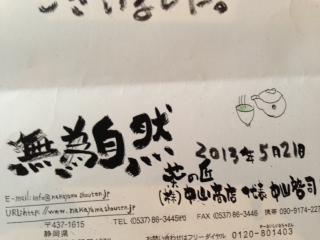 ございました。
無為自然
2013年5月21日
茶の匠
(株)中山商店 代表 中山裕司
E-mail: info@nakayamashouten.jp
URL:http://www.nakayamashouten.jp
〒437-1615
静岡県
TEL (0537) 86-3445㈹ FAX (0537) 86-3446 携帯 090-9174-22
お問い合わせはフリーダイヤル 0120-801403